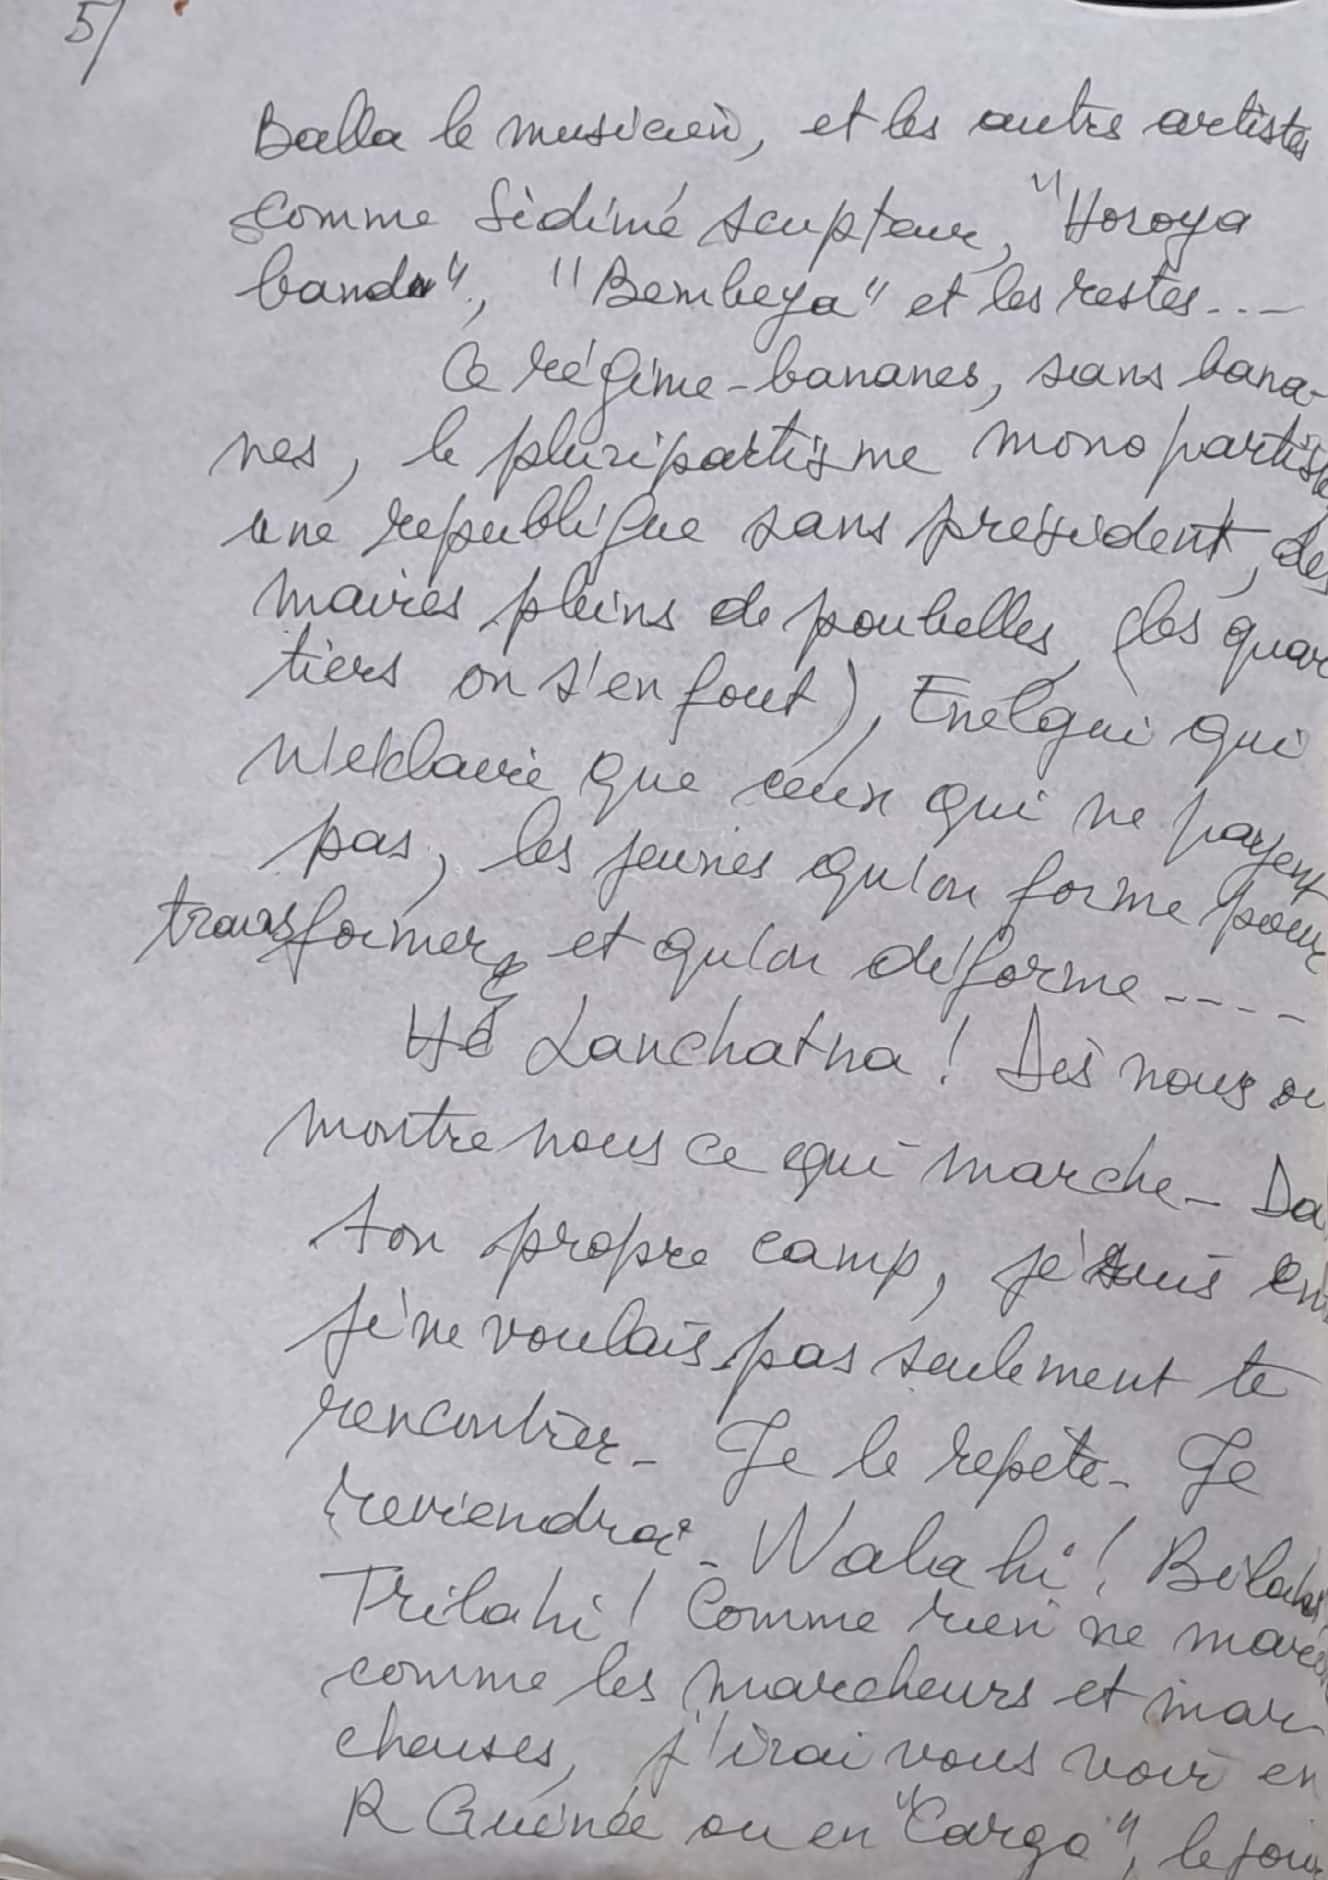 5/
Balla le musicien, et les autres artistes
comme Sidimé scupteur, "Horoya
band", "Bembeya" et les restes...
Ce régime-bananes, sans bana-
nes, le pluripartisme monopartis
une republique sans president, des
maires pleins de poubelles, (les quar
tiers on s'en fout), Enelgui qui
n'eclaire que ceux qui ne payent
pas, les jeunes qu'on forme pour
transformer, et qu'on déforme....
Hé Lanchatna! Dis nous ou
montre nous ce qui marche - Da
ton propre camp, je suis en
je ne voulais pas seulement te
rencontrer - Je le repète - Je
reviendrai - Walahi! Bilahi
Trilahi! Comme rien ne marche
comme les marcheurs et mar
cheuses, j'irai vous voir en
R Guinée ou en "Cargo", le jour